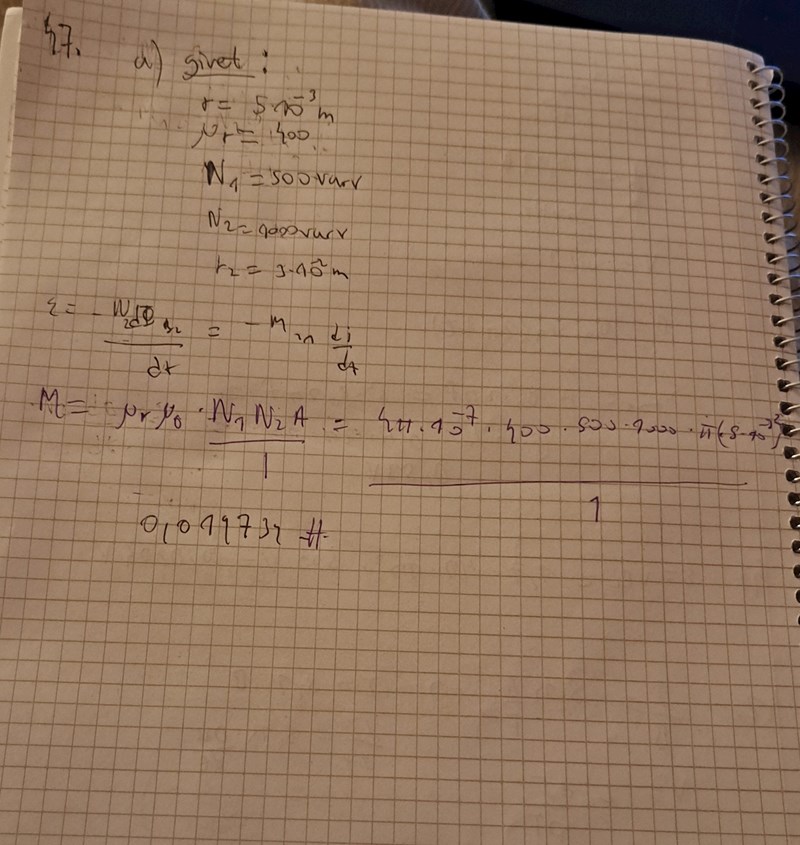 47.
a) givet:
r = 5·10⁻³ m
μr = 400
N₁ = 500 varv
N₂ = 1000 varv
r₂ = 3·10⁻² m
ε = - N₂dΦ_B₂ / dt = - M₂₁ di / dt
M = μr μ₀ · N₁ N₂ A / l = 4π·10⁻⁷ · 400 · 500 · 1000 · π(5·10⁻³)² / 1
0,01973 H